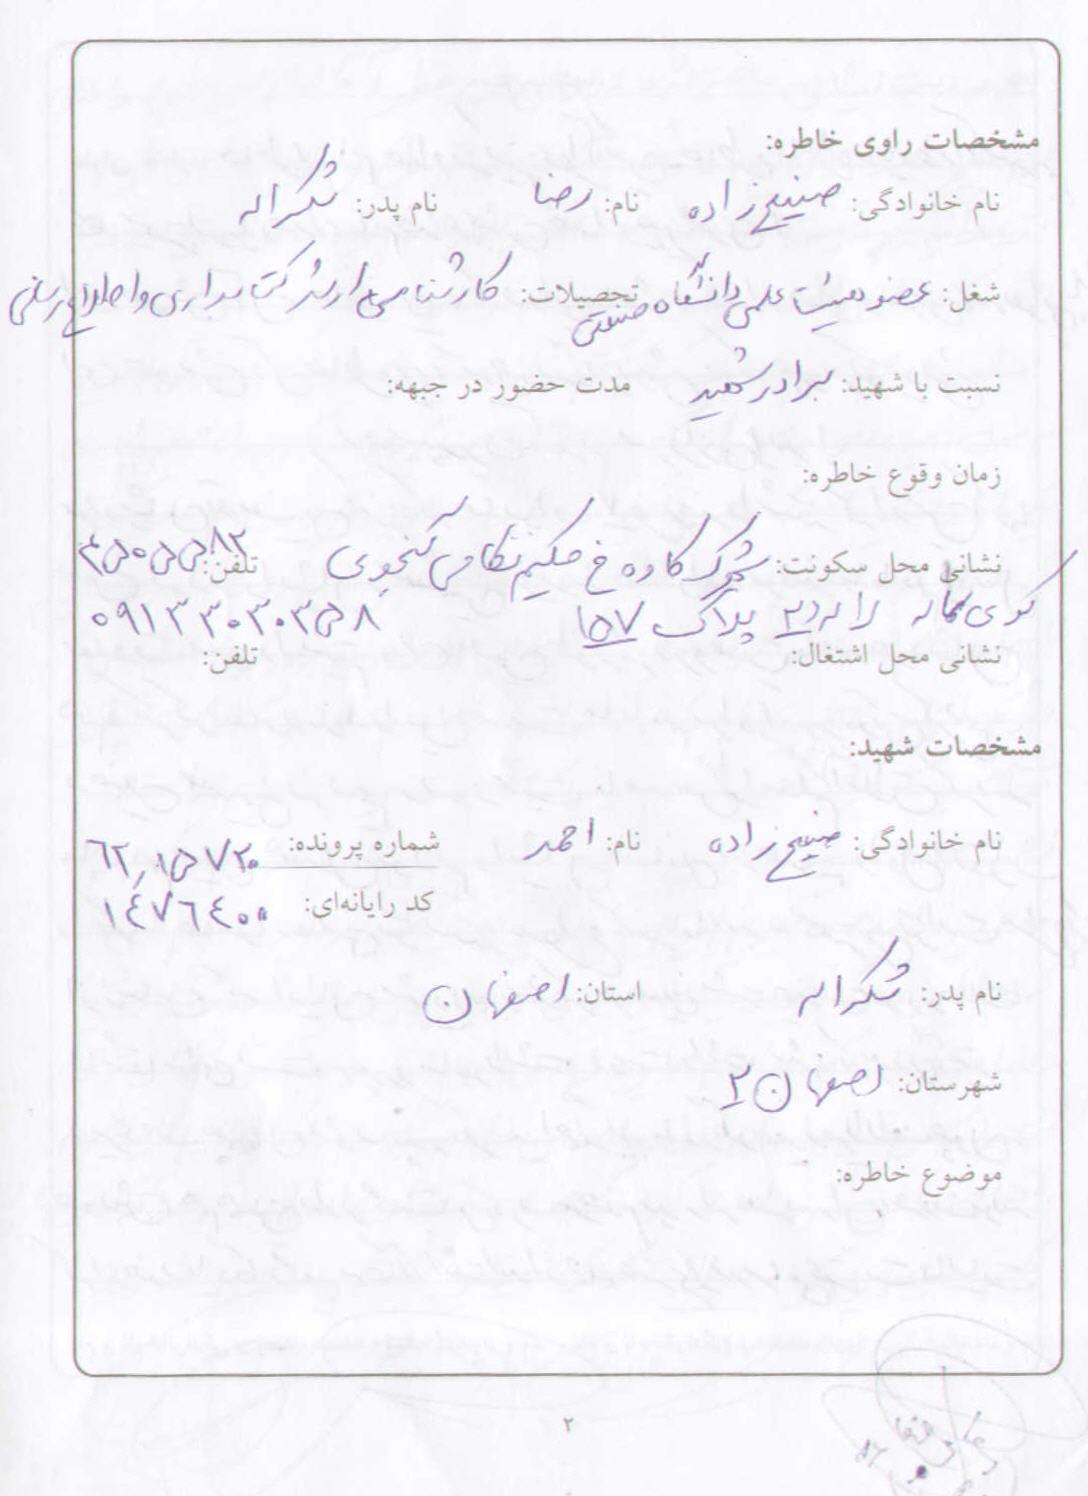 مشخصات راوی خاطره:
نام خانوادگی: صنیع زاده نام: رضا نام پدر: شکراله
شغل: عضو هیئت علمی دانشگاه صنعتی تحصیلات: کارشناسی ارشد کتابداری و اطلاع رسانی
نسبت با شهید: برادر شهید مدت حضور در جبهه:
زمان وقوع خاطره:
نشانی محل سکونت: شهرک کاوه خ حکیم نظامی گنجوی تلفن:
کوی پلاک ۱۵۷ ۰۹۱۳۳۰۳۰۳۵۸
نشانی محل اشتغال: تلفن:
مشخصات شهید:
نام خانوادگی: صنیع زاده نام: احمد شماره پرونده: ۶۲٫۱۵۷۲۰
کد رایانه‌ای: ۱۴۷۶۴۰۰
نام پدر: شکراله استان: اصفهان
شهرستان: اصفهان ۲
موضوع خاطره:
۲